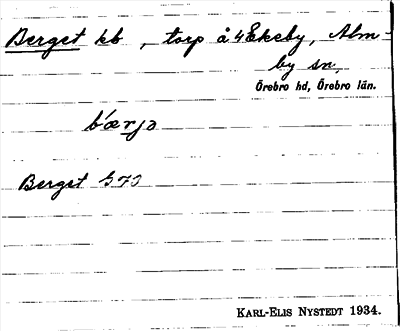 Berget kb, torp å 4 Ekeby, Alm-
by sn,
Örebro hd, Örebro län.
b´ærjə
Berget G70
KARL-ELIS NYSTEDT 1934.